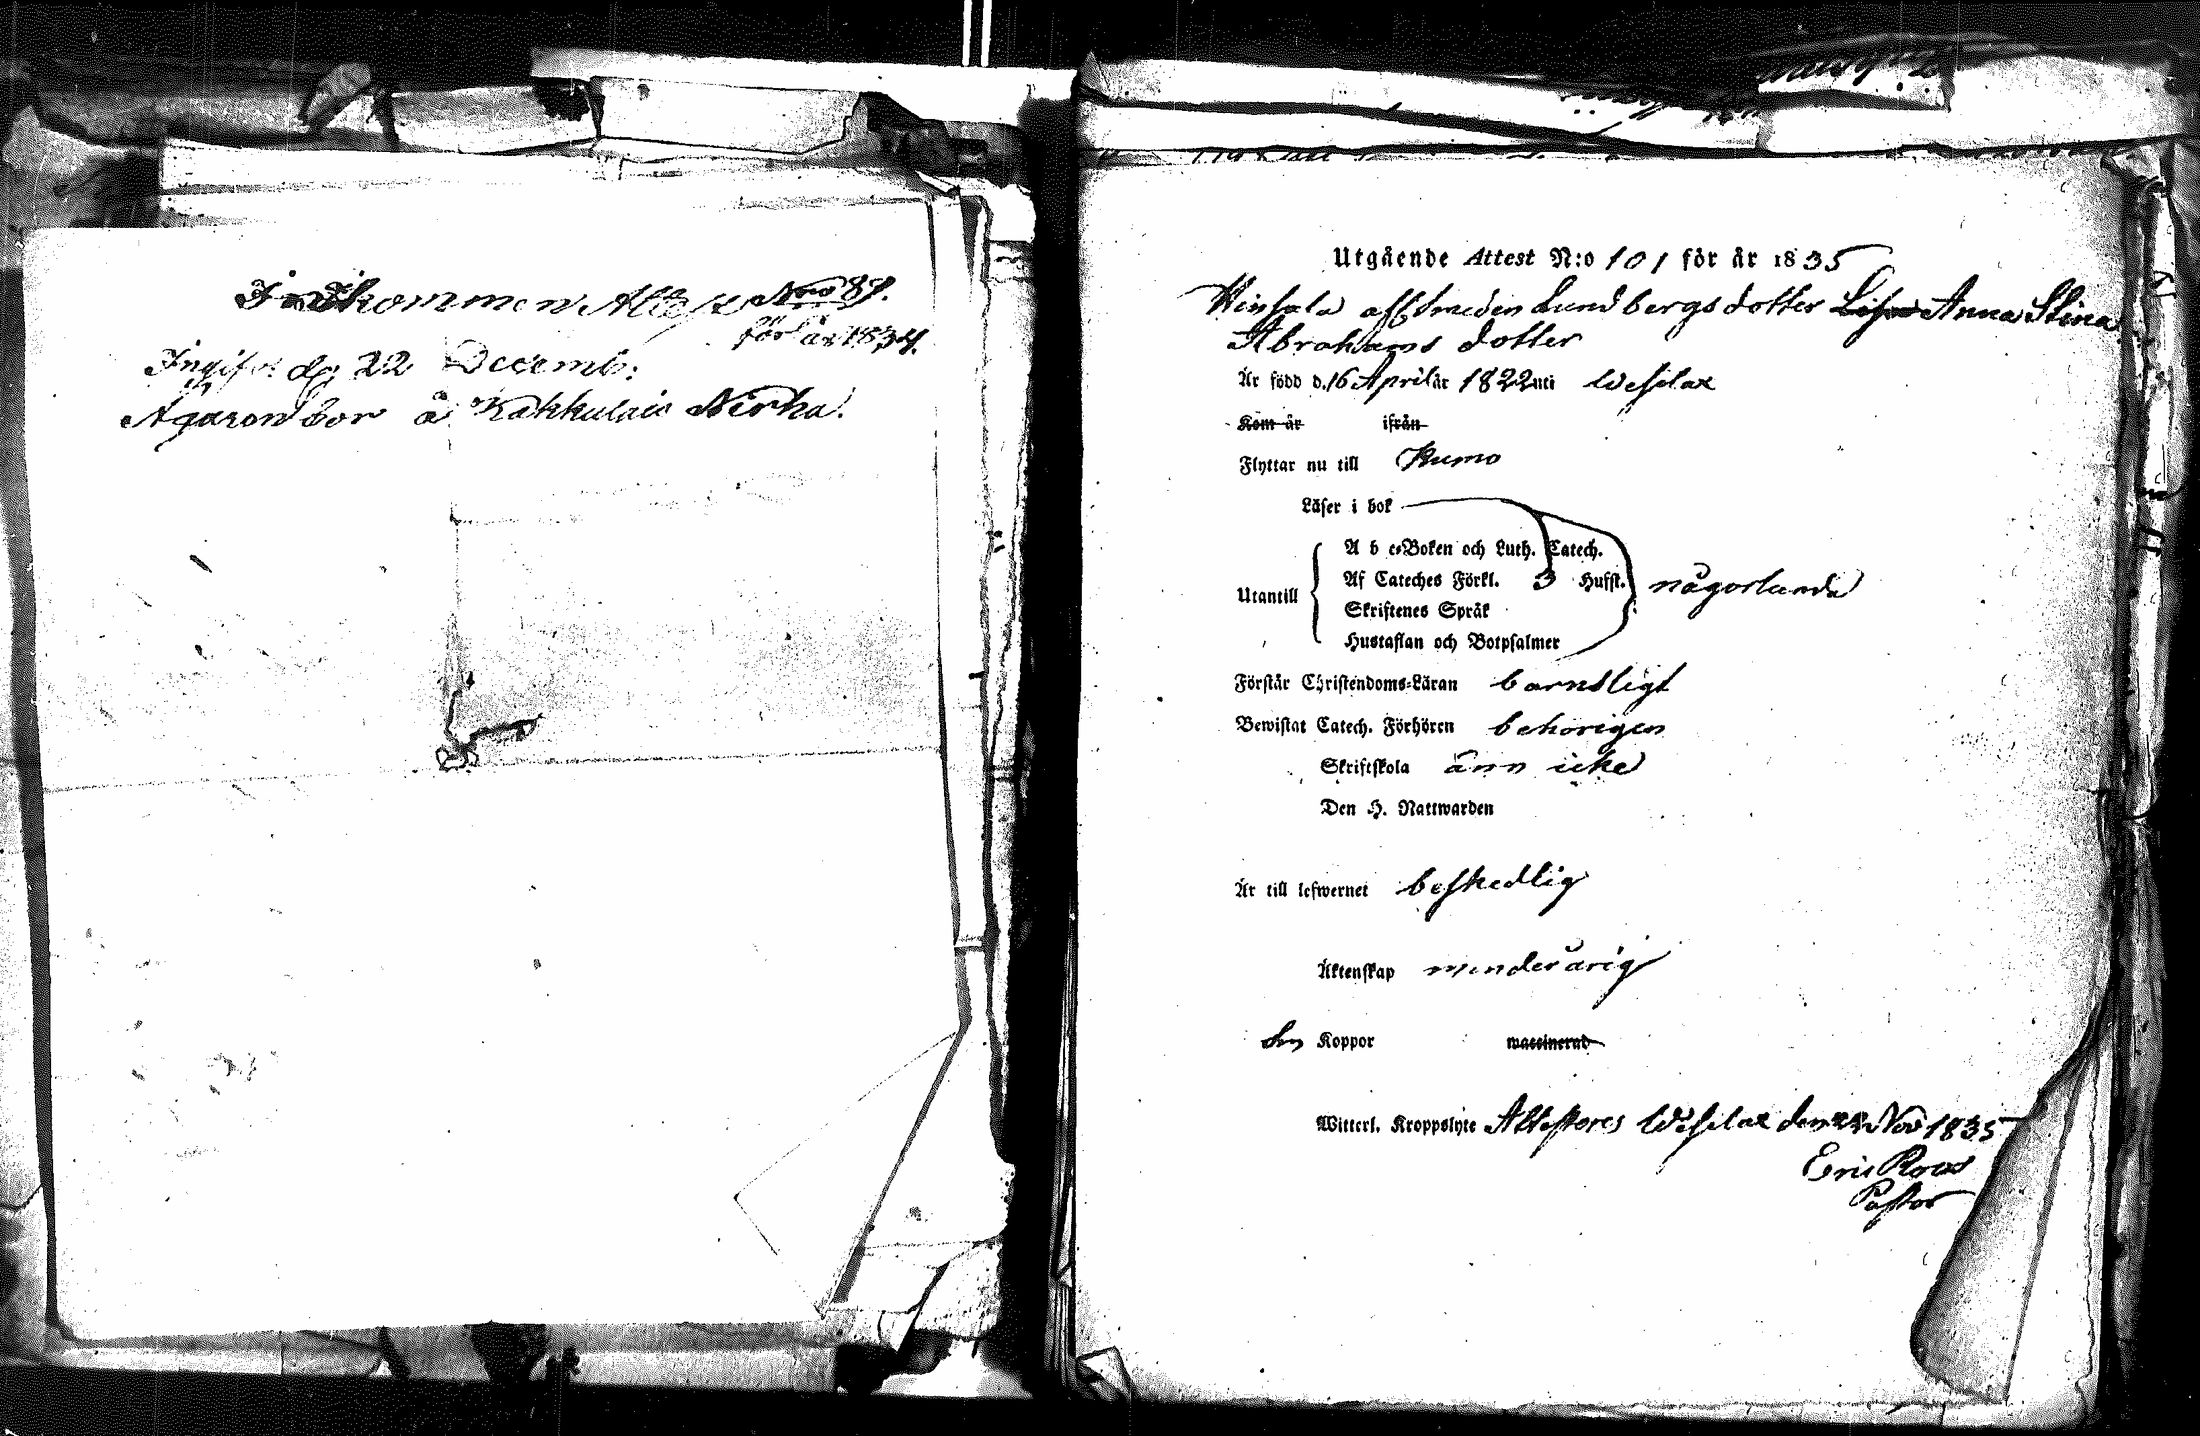 Inkommen Attest Nro 89.
för år 1834.
Ingifvit d. 22 Decemb:
Ägaren bor å Kakkulais Nirka.
Utgående Attest N:o 101 för år 1835
Hinsala aff. Smeden Lundbergs dotter Lisa Anna Stina
Abrahams dotter
Är född d. 16 April år 1822 uti Wesilax
Kom år ifrån
Flyttar nu till Kumo
Läser i bok
A b c-Boken och Luth. Catech.
Af Cateches Förkl. 3 Hufst.
Utantill någorlunda
Skriftenes Språk
Hustaflan och Botpsalmer
Förstår Christendoms-Läran barnsligt
Bewistat Catech. Förhören behörigen
Skriftskola änn icke
Den H. Nattwarden
Är till lefwernet beskedlig
Äktenskap minderårig
Koppor waccinerad
Witterl. Kroppslyte Attesteres Wesilax den Nov 1835
Eric Roos
Pastor